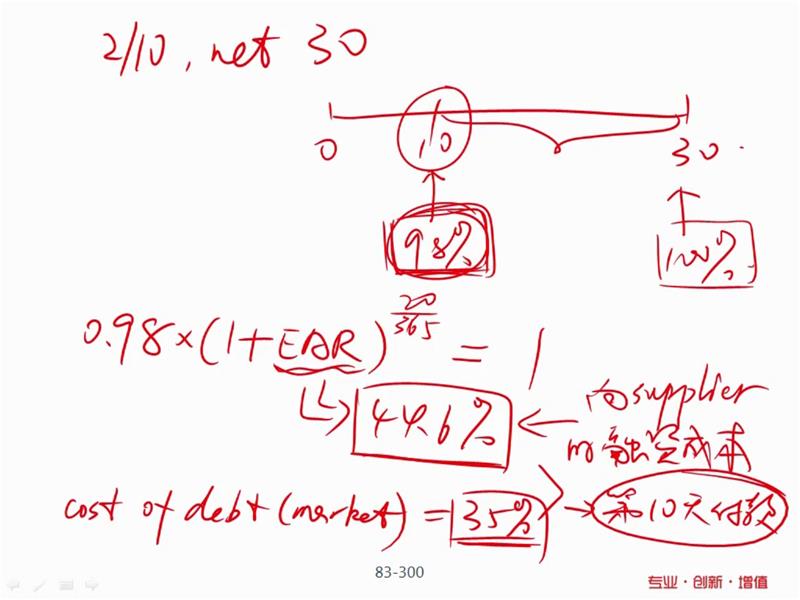 2/10, net 30
0 10 30
98% 100%
0.98×(1+EAR)^{20/365} = 1
44.6% ← 向supplier
的融资成本
cost of debt (market) = 35% → 第10天付款
83-300
专业·创新·增值